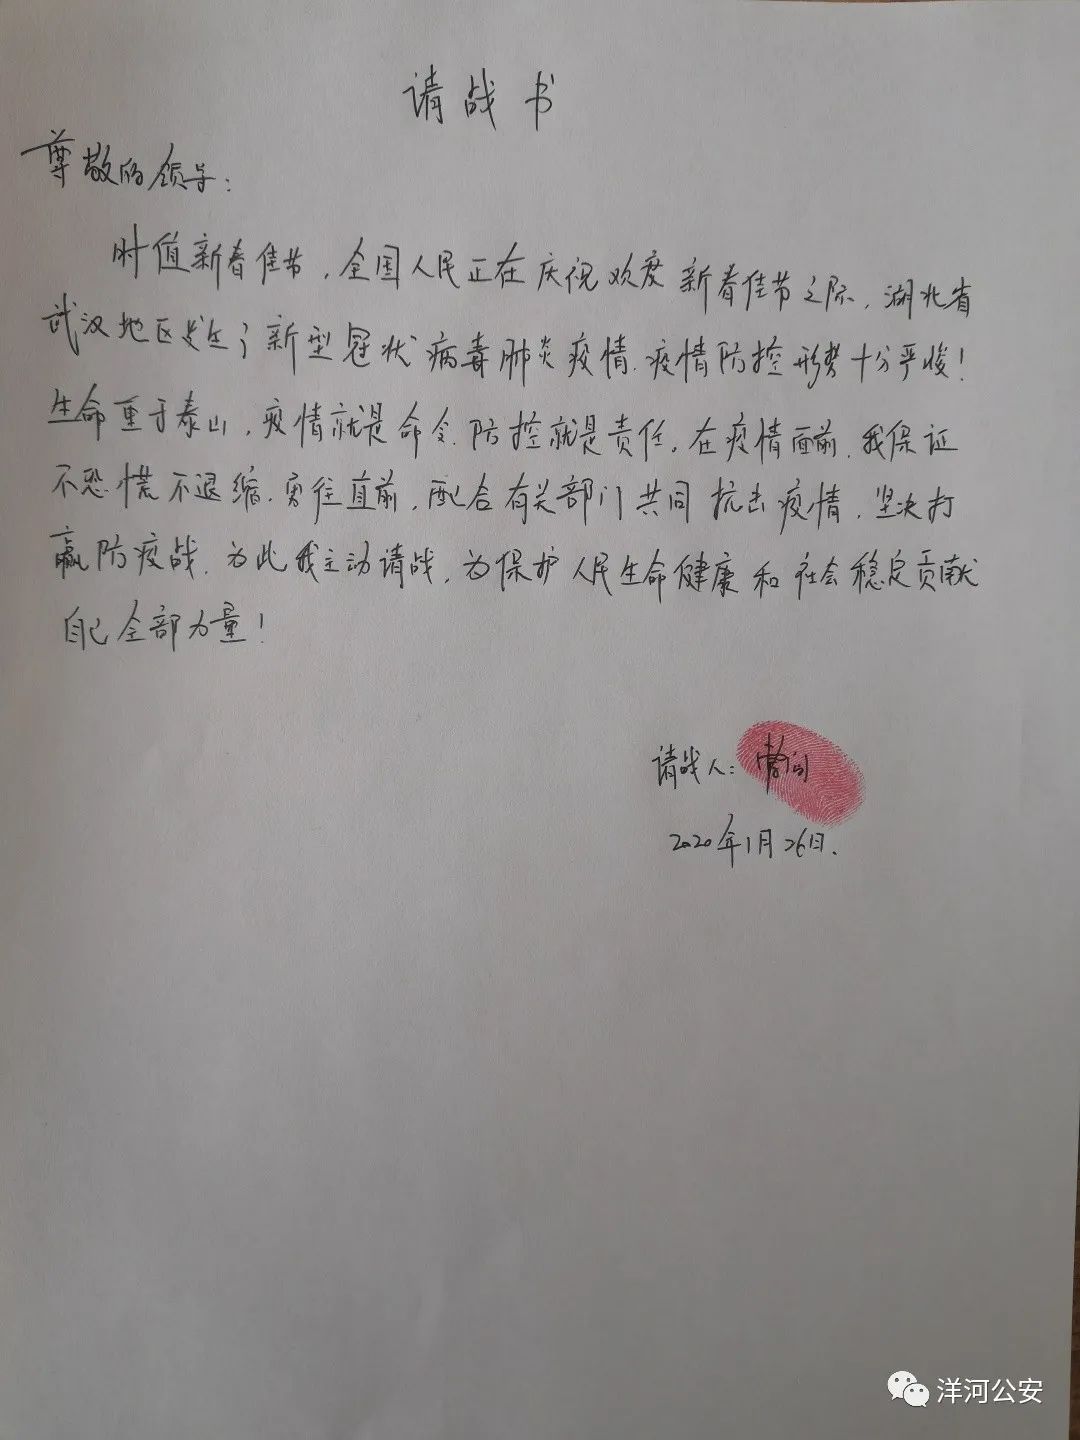 请战书
尊敬的领导:
时值新春佳节,全国人民正在庆祝欢度新春佳节之际,湖北省
武汉地区发生了新型冠状病毒肺炎疫情.疫情防控形势十分严峻!
生命重于泰山,疫情就是命令.防控就是责任,在疫情面前.我保证
不恐慌不退缩.勇往直前,配合有关部门共同抗击疫情,坚决打
赢防疫战.为此我主动请战,为保护人民生命健康和社会稳定贡献
自己全部力量!
请战人:
2020年1月26日.
洋河公安